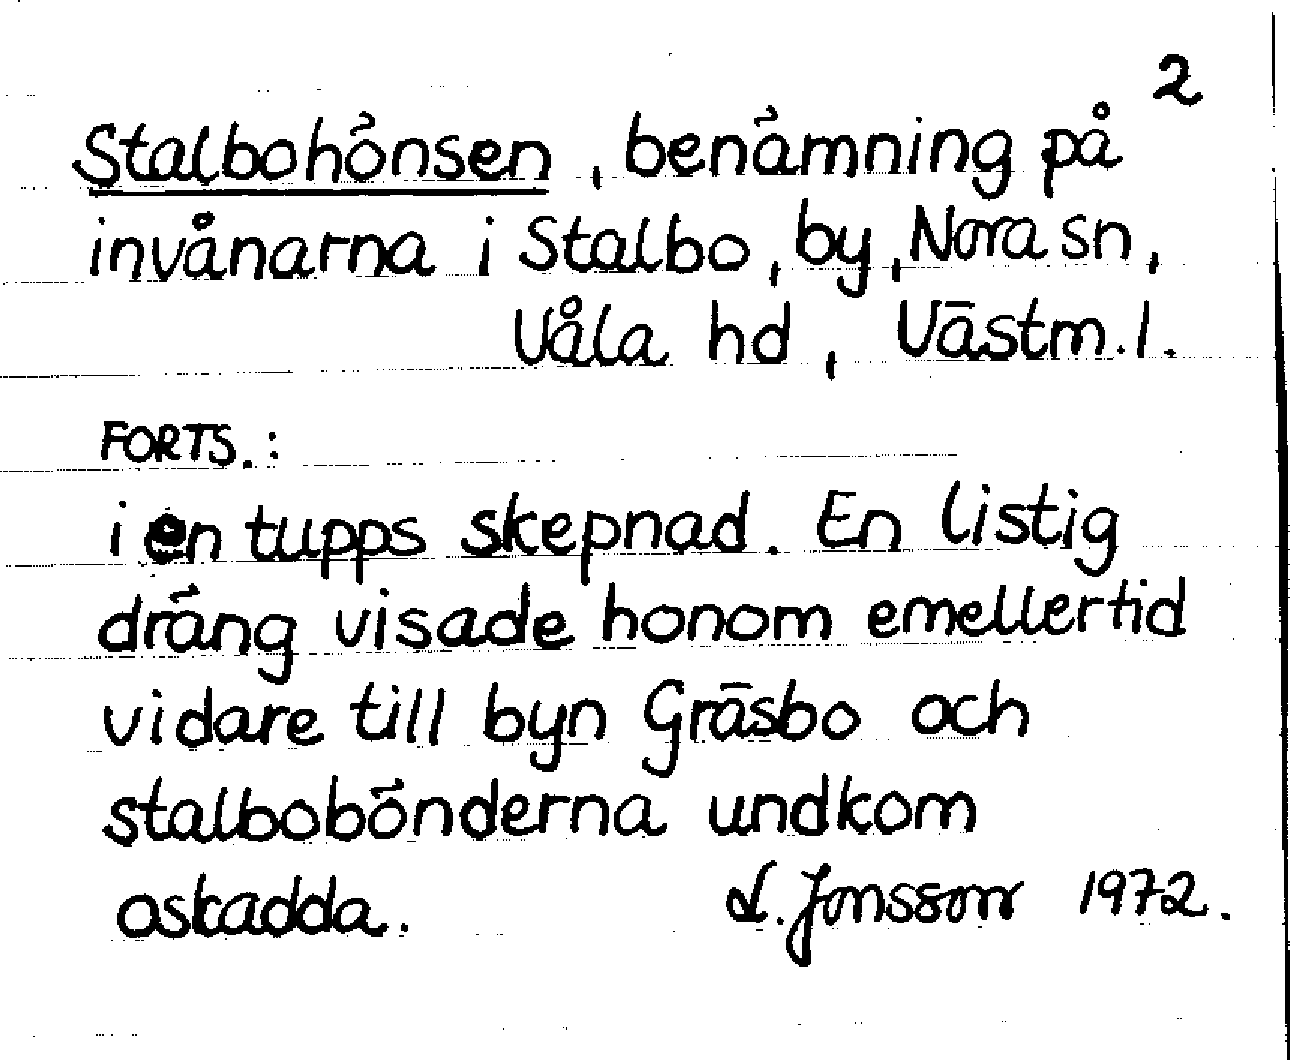 2
Stalbohönsen, benämning på
invånarna i Stalbo, by, Nora sn,
Våla hd, Västm. l.
FORTS.:
i en tupps skepnad. En listig
dräng visade honom emellertid
vidare till byn Gräsbo och
stalbobönderna undkom
oskadda. L. Jonsson 1972.